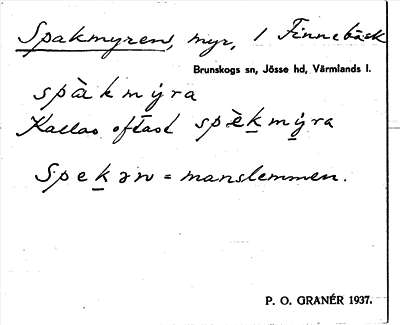 Spakmyren, myr, 1 Finnebäck
Brunskogs sn, Jösse hd, Värmlands l.
spàkmýra
Kallas oftast spèkmýra
Spekən = manslemmen.
P. O. GRANÉR 1937.